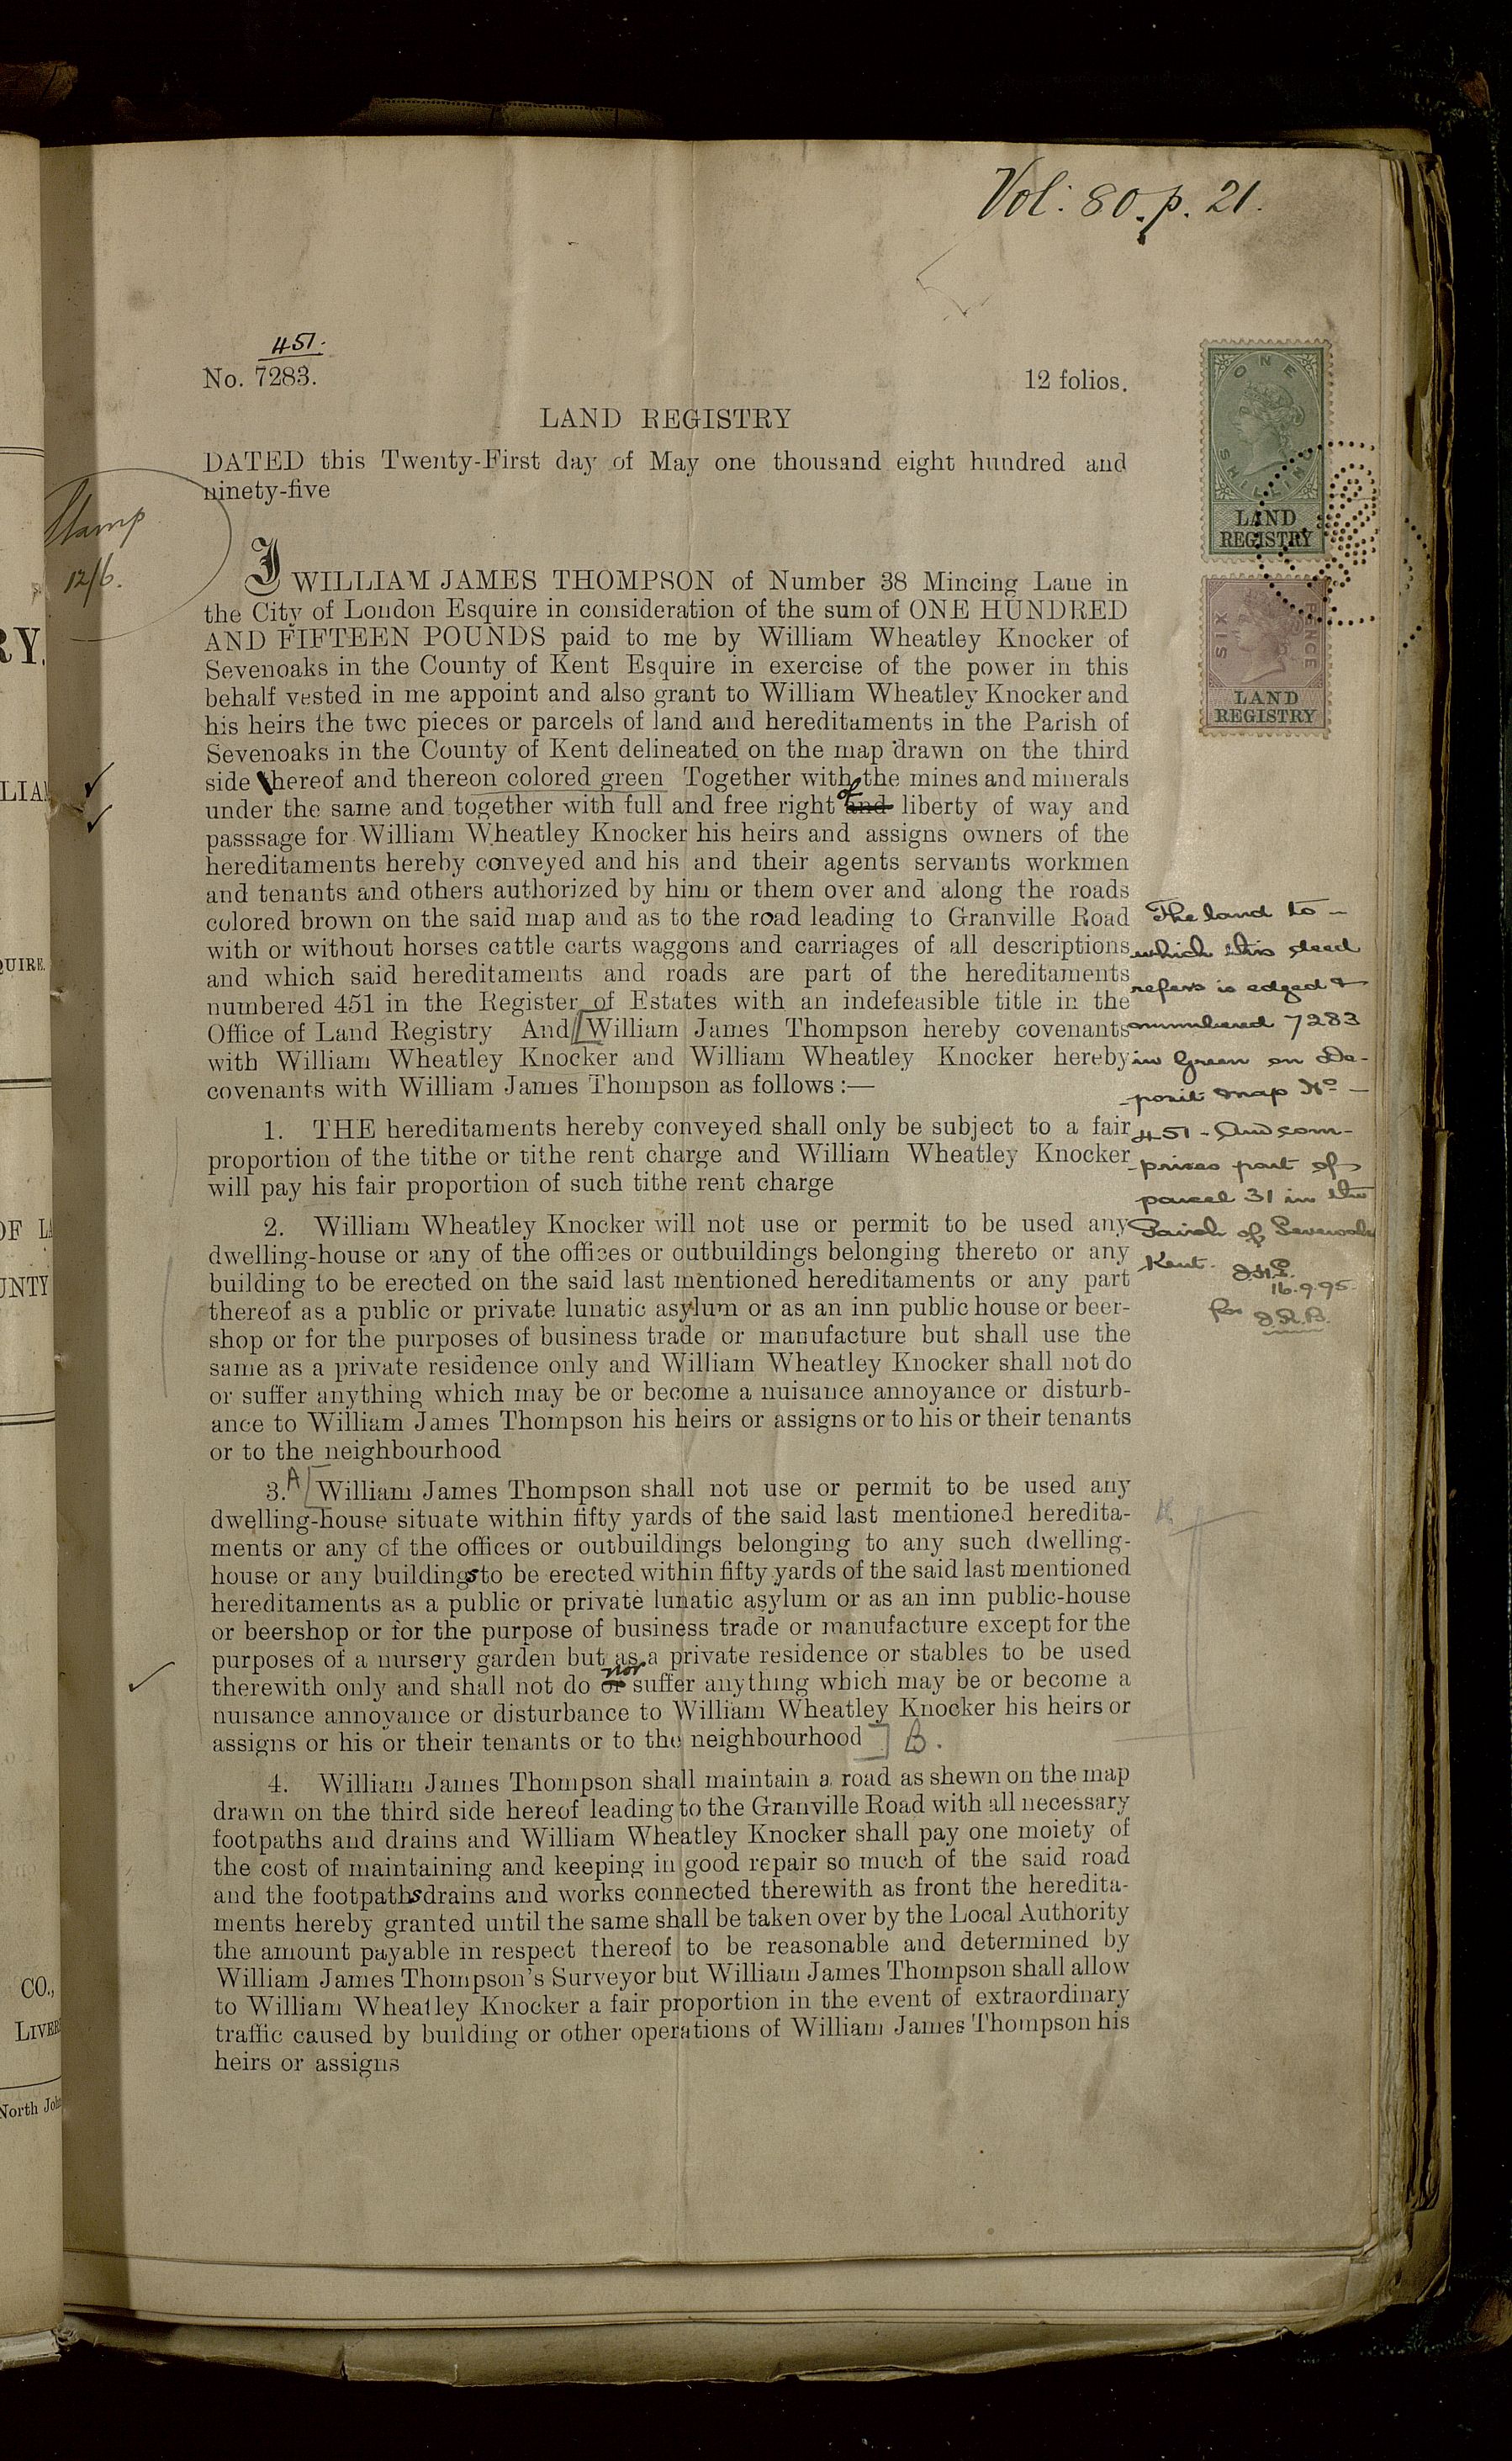 Vol: 80. p. 21.
451.
No. 7283.
12 folios.
LAND REGISTRY
DATED this Twenty-First day of May one thousand eight hundred and
ninety-five
Stamp
12/6.
ONE
SHILLING
LAND
REGISTRY
SIX
PENCE
LAND
REGISTRY
I WILLIAM JAMES THOMPSON of Number 38 Mincing Lane in
the City of London Esquire in consideration of the sum of ONE HUNDRED
AND FIFTEEN POUNDS paid to me by William Wheatley Knocker of
Sevenoaks in the County of Kent Esquire in exercise of the power in this
behalf vested in me appoint and also grant to William Wheatley Knocker and
his heirs the two pieces or parcels of land and hereditaments in the Parish of
Sevenoaks in the County of Kent delineated on the map drawn on the third
side hereof and thereon colored green Together with the mines and minerals
under the same and together with full and free right of and liberty of way and
passsage for William Wheatley Knocker his heirs and assigns owners of the
hereditaments hereby conveyed and his and their agents servants workmen
and tenants and others authorized by him or them over and along the roads
colored brown on the said map and as to the road leading to Granville Road
with or without horses cattle carts waggons and carriages of all descriptions
and which said hereditaments and roads are part of the hereditaments
numbered 451 in the Register of Estates with an indefeasible title in the
Office of Land Registry And [William James Thompson hereby covenants
with William Wheatley Knocker and William Wheatley Knocker hereby
covenants with William James Thompson as follows :—
1. THE hereditaments hereby conveyed shall only be subject to a fair
proportion of the tithe or tithe rent charge and William Wheatley Knocker
will pay his fair proportion of such tithe rent charge
2. William Wheatley Knocker will not use or permit to be used any
dwelling-house or any of the offices or outbuildings belonging thereto or any
building to be erected on the said last mentioned hereditaments or any part
thereof as a public or private lunatic asylum or as an inn public house or beer-
shop or for the purposes of business trade or manufacture but shall use the
same as a private residence only and William Wheatley Knocker shall not do
or suffer anything which may be or become a nuisance annoyance or disturb-
ance to William James Thompson his heirs or assigns or to his or their tenants
or to the neighbourhood
3. A [William James Thompson shall not use or permit to be used any
dwelling-house situate within fifty yards of the said last mentioned heredita-
ments or any of the offices or outbuildings belonging to any such dwelling-
house or any buildings to be erected within fifty yards of the said last mentioned
hereditaments as a public or private lunatic asylum or as an inn public-house
or beershop or for the purpose of business trade or manufacture except for the
purposes of a nursery garden but as a private residence or stables to be used
therewith only and shall not do or nor suffer anything which may be or become a
nuisance annoyance or disturbance to William Wheatley Knocker his heirs or
assigns or his or their tenants or to the neighbourhood ] B.
4. William James Thompson shall maintain a road as shewn on the map
drawn on the third side hereof leading to the Granville Road with all necessary
footpaths and drains and William Wheatley Knocker shall pay one moiety of
the cost of maintaining and keeping in good repair so much of the said road
and the footpaths drains and works connected therewith as front the heredita-
ments hereby granted until the same shall be taken over by the Local Authority
the amount payable in respect thereof to be reasonable and determined by
William James Thompson's Surveyor but William James Thompson shall allow
to William Wheatley Knocker a fair proportion in the event of extraordinary
traffic caused by building or other operations of William James Thompson his
heirs or assigns
The land to
which this deed
refers is edged &
numbered 7283
in Green on De-
posit Map No
451 - And com-
prises part of
parcel 31 in the
Parish of Sevenoaks
Kent.
16.9.95.
for
RY.
LIA
QUIRE.
OF LA
UNTY
CO.,
LIVER
North Joh